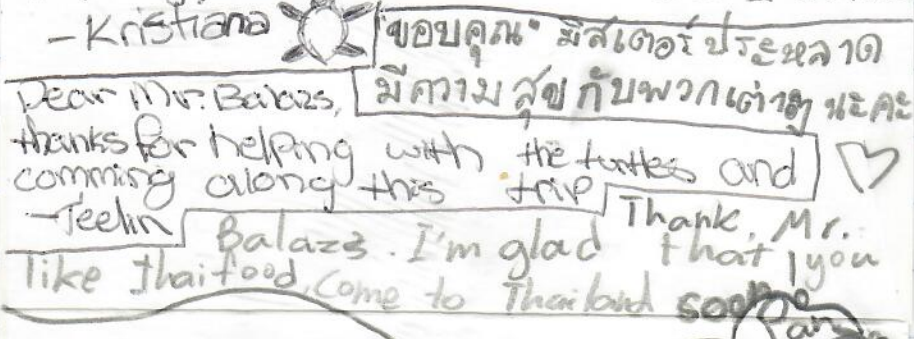 -Kristiana
"ขอบคุณ" มิสเตอร์ ประหลาด
มีความสุขกับพวกเต่าๆ นะคะ
Dear Mr. Balazs,
thanks for helping with the turtles and
comming along this trip
-Jeelin
Thank, Mr.
Balazs. I'm glad that you
like thai food, Come to Thailand soon
Pan